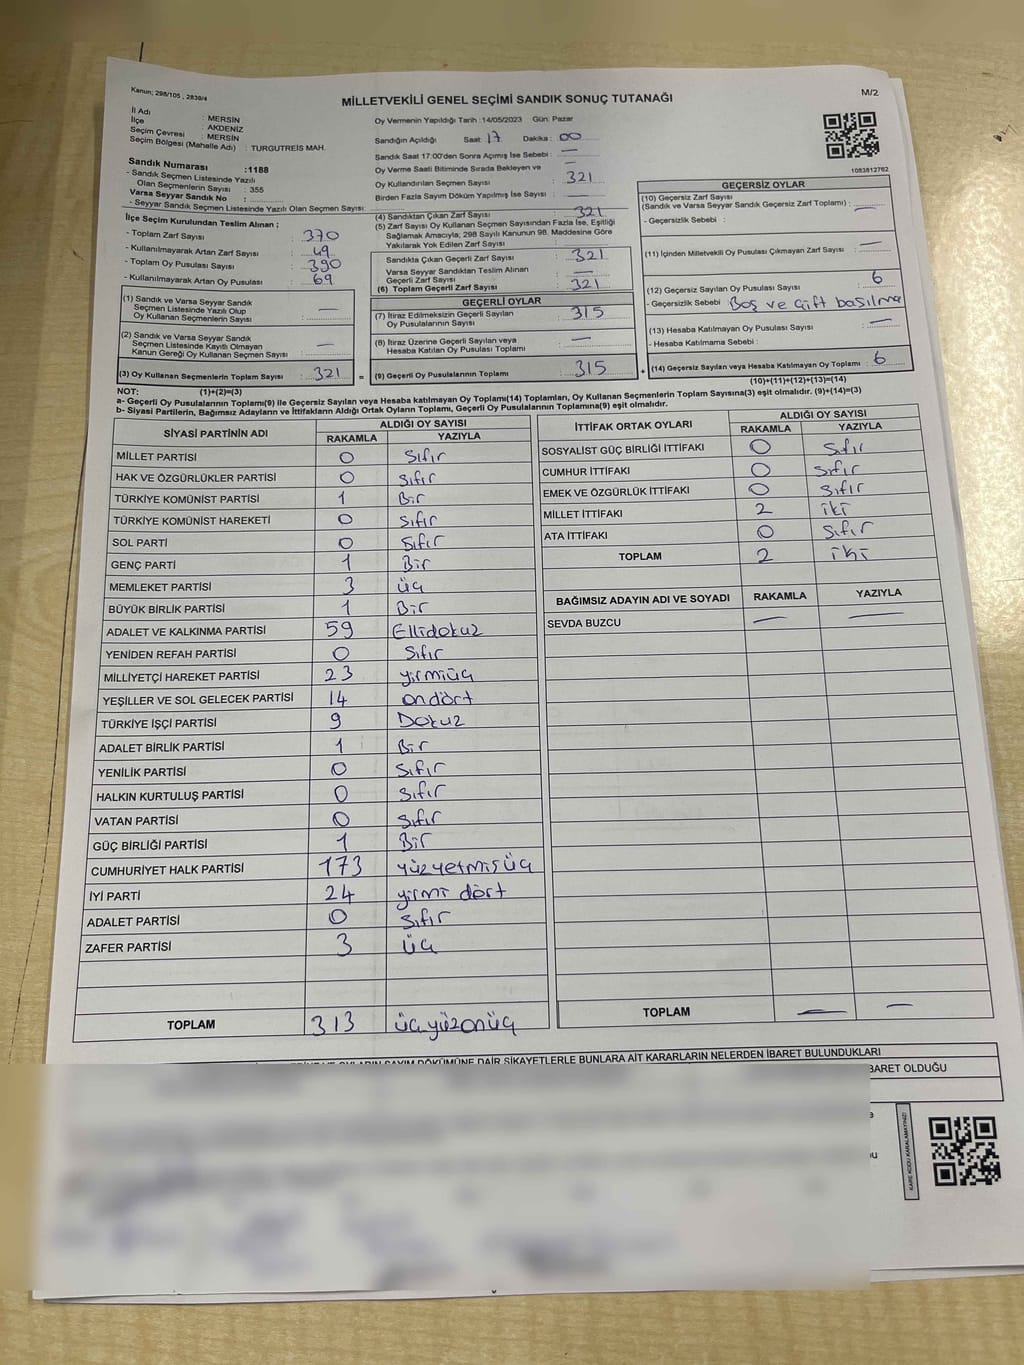 Kanun; 298/105 , 2839/4
MİLLETVEKİLİ GENEL SEÇİMİ SANDIK SONUÇ TUTANAĞI
M/2
İl Adı : MERSİN
İlçe : AKDENİZ
Seçim Çevresi : MERSİN
Seçim Bölgesi (Mahalle Adı) : TURGUTREİS MAH.
Sandık Numarası :1188
- Sandık Seçmen Listesinde Yazılı
Olan Seçmenlerin Sayısı : 355
Varsa Seyyar Sandık No :
- Seyyar Sandık Seçmen Listesinde Yazılı Olan Seçmen Sayısı:
Oy Vermenin Yapıldığı Tarih :14/05/2023 Gün: Pazar
Sandığın Açıldığı Saat: 17 Dakika: 00
Sandık Saat 17:00'den Sonra Açımış İse Sebebi : —
Oy Verme Saati Bitiminde Sırada Bekleyen ve
Oy Kullandırılan Seçmen Sayısı : 321
Birden Fazla Sayım Döküm Yapılmış İse Sayısı :
1083812762
İlçe Seçim Kurulundan Teslim Alınan ;
- Toplam Zarf Sayısı : 370
- Kullanılmayarak Artan Zarf Sayısı : 49
- Toplam Oy Pusulası Sayısı : 390
- Kullanılmayarak Artan Oy Pusulası : 69
(1) Sandık ve Varsa Seyyar Sandık
Seçmen Listesinde Yazılı Olup
Oy Kullanan Seçmenlerin Sayısı : —
(2) Sandık ve Varsa Seyyar Sandık
Seçmen Listesinde Kayıtlı Olmayan
Kanun Gereği Oy Kullanan Seçmen Sayısı : —
(3) Oy Kullanan Seçmenlerin Toplam Sayısı : 321
(1)+(2)=(3)
(4) Sandıktan Çıkan Zarf Sayısı : 321
(5) Zarf Sayısı Oy Kullanan Seçmen Sayısından Fazla İse, Eşitliği
Sağlamak Amacıyla; 298 Sayılı Kanunun 98. Maddesine Göre
Yakılarak Yok Edilen Zarf Sayısı :
Sandıkta Çıkan Geçerli Zarf Sayısı : 321
Varsa Seyyar Sandıktan Teslim Alınan
Geçerli Zarf Sayısı : —
(6) Toplam Geçerli Zarf Sayısı : 321
GEÇERLİ OYLAR
(7) İtiraz Edilmeksizin Geçerli Sayılan
Oy Pusulalarının Sayısı : 315
(8) İtiraz Üzerine Geçerli Sayılan veya
Hesaba Katılan Oy Pusulası Toplamı : —
= (9) Geçerli Oy Pusulalarının Toplamı : 315
GEÇERSİZ OYLAR
(10) Geçersiz Zarf Sayısı
(Sandık ve Varsa Seyyar Sandık Geçersiz Zarf Toplamı) : —
- Geçersizlik Sebebi :
(11) İçinden Milletvekili Oy Pusulası Çıkmayan Zarf Sayısı : —
(12) Geçersiz Sayılan Oy Pusulası Sayısı : 6
- Geçersizlik Sebebi : Boş ve Çift basılma
(13) Hesaba Katılmayan Oy Pusulası Sayısı : —
- Hesaba Katılmama Sebebi :
+ (14) Geçersiz Sayılan veya Hesaba Katılmayan Oy Toplamı : 6
(10)+(11)+(12)+(13)=(14)
NOT:
a- Geçerli Oy Pusulalarının Toplamı(9) ile Geçersiz Sayılan veya Hesaba katılmayan Oy Toplamı(14) Toplamları, Oy Kullanan Seçmenlerin Toplam Sayısına(3) eşit olmalıdır. (9)+(14)=(3)
b- Siyasi Partilerin, Bağımsız Adayların ve İttifakların Aldığı Ortak Oyların Toplamı, Geçerli Oy Pusulalarının Toplamına(9) eşit olmalıdır.
SİYASİ PARTİNİN ADI ALDIĞI OY SAYISI
RAKAMLA YAZIYLA
MİLLET PARTİSİ 0 Sıfır
HAK VE ÖZGÜRLÜKLER PARTİSİ 0 Sıfır
TÜRKİYE KOMÜNİST PARTİSİ 1 Bir
TÜRKİYE KOMÜNİST HAREKETİ 0 Sıfır
SOL PARTİ 0 Sıfır
GENÇ PARTİ 1 Bir
MEMLEKET PARTİSİ 3 üç
BÜYÜK BİRLİK PARTİSİ 1 Bir
ADALET VE KALKINMA PARTİSİ 59 Ellidokuz
YENİDEN REFAH PARTİSİ 0 Sıfır
MİLLİYETÇİ HAREKET PARTİSİ 23 yirmiüç
YEŞİLLER VE SOL GELECEK PARTİSİ 14 ondört
TÜRKİYE İŞÇİ PARTİSİ 9 Dokuz
ADALET BİRLİK PARTİSİ 1 Bir
YENİLİK PARTİSİ 0 Sıfır
HALKIN KURTULUŞ PARTİSİ 0 Sıfır
VATAN PARTİSİ 0 Sıfır
GÜÇ BİRLİĞİ PARTİSİ 1 Bir
CUMHURİYET HALK PARTİSİ 173 yüzyetmişüç
İYİ PARTİ 24 yirmi dört
ADALET PARTİSİ 0 Sıfır
ZAFER PARTİSİ 3 üç
TOPLAM 313 üçyüzonüç
İTTİFAK ORTAK OYLARI ALDIĞI OY SAYISI
RAKAMLA YAZIYLA
SOSYALİST GÜÇ BİRLİĞİ İTTİFAKI 0 Sıfır
CUMHUR İTTİFAKI 0 Sıfır
EMEK VE ÖZGÜRLÜK İTTİFAKI 0 Sıfır
MİLLET İTTİFAKI 2 iki
ATA İTTİFAKI 0 Sıfır
TOPLAM 2 iki
BAĞIMSIZ ADAYIN ADI VE SOYADI RAKAMLA YAZIYLA
SEVDA BUZCU — —
TOPLAM — —
SAYIM DÖKÜMÜNE DAİR ŞİKAYETLERLE BUNLARA AİT KARARLARIN NELERDEN İBARET BULUNDUKLARI
İBARET OLDUĞU
KARE KODU KARALAMAYINIZ!